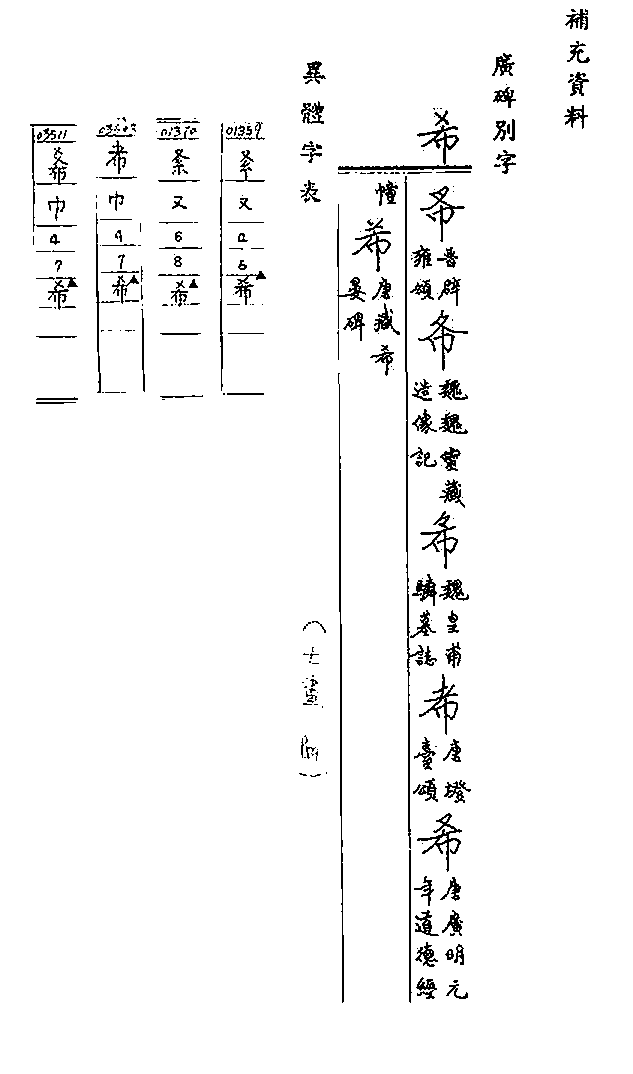 補充資料
廣碑別字
希
晉辟雍頌
魏魏靈藏造像記
希
魏皇甫驎墓誌
唐
頌
希
唐廣明元年道德經
幢
唐臧希晏碑
異體字表
(七畫
01359
又
6
希▲
01370
又
6
8
希▲
巾
4
7
希▲
03511
巾
4
7
希▲